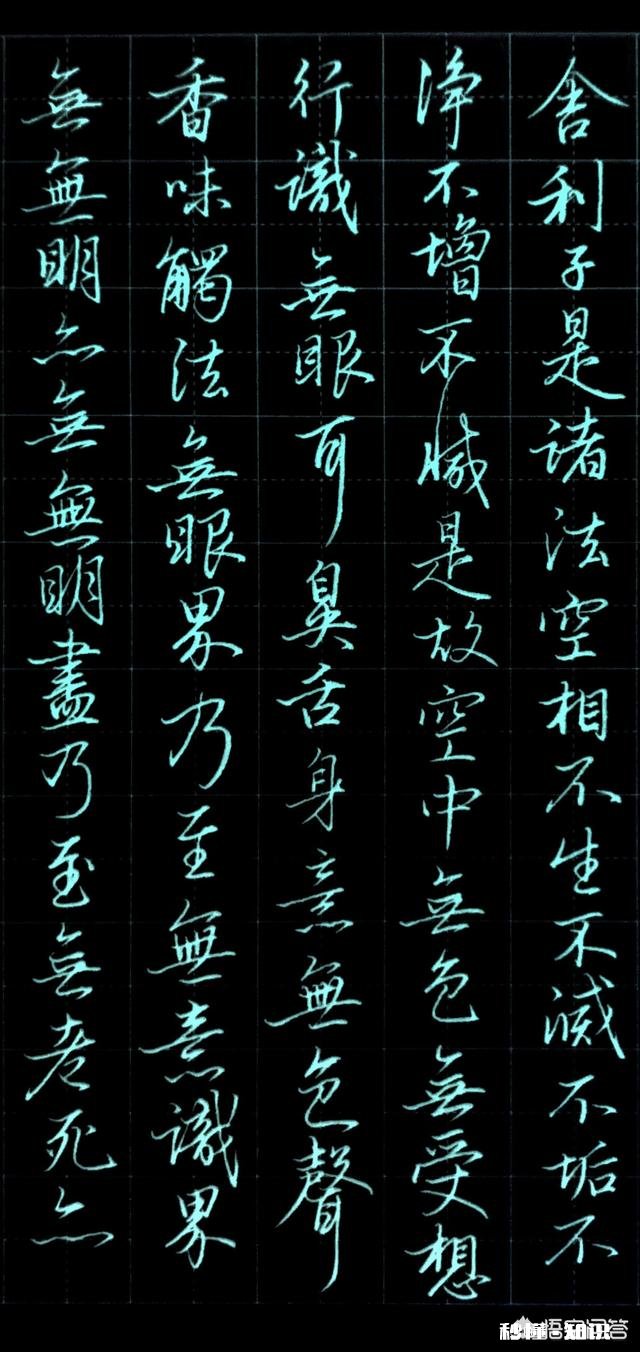 舍利子是諸法空相不生不滅不垢不
淨不增不減是故空中無色無受想
行識無眼耳鼻舌身意無色聲
香味觸法無眼界乃至無意識界
無無明亦無無明盡乃至無老死亦
秒懂·知识
悟空问答